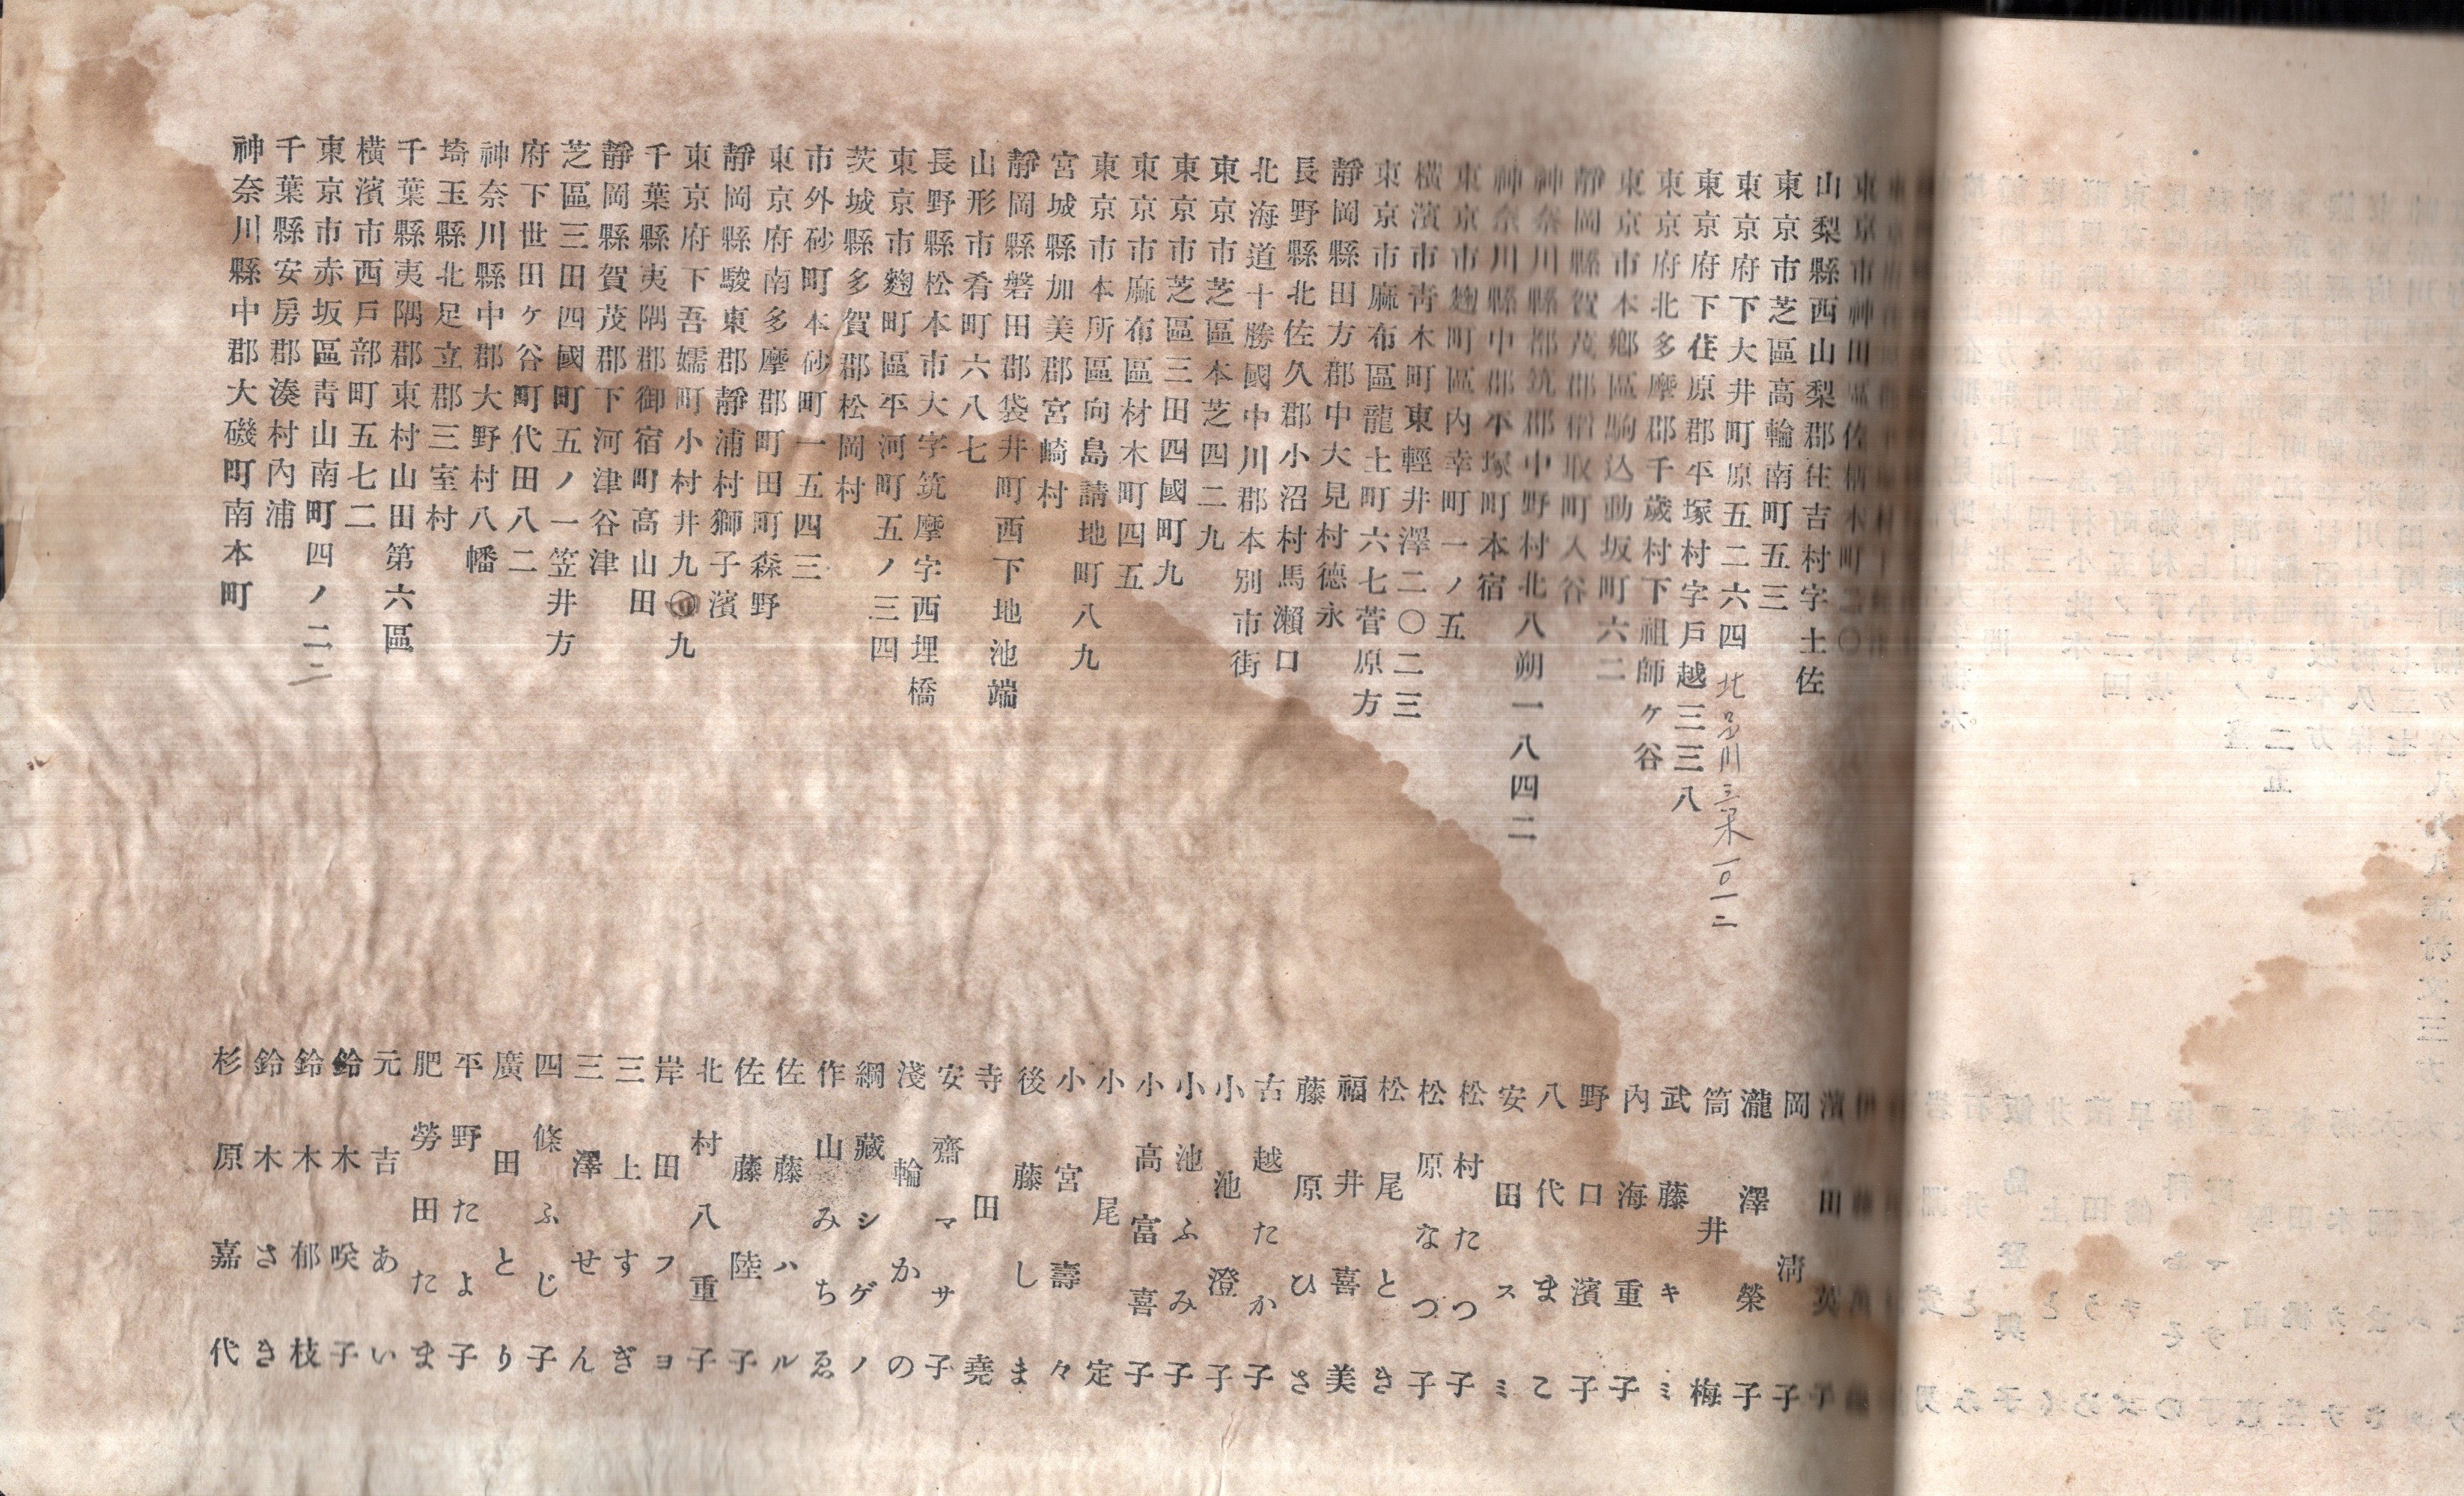 東京市神田區佐柄木町二〇 濱田英子
山梨縣西山梨郡住吉村字土佐 岡淸子
東京市芝區高輪南町五三 瀧澤榮子
東京府下大井町原五二六四 北品川三 一〇一二 筒井梅
東京府下荏原郡平塚村字戸越三三八 武藤キミ
東京府北多摩郡千歲村下祖師ヶ谷 內海重子
東京市本鄕區駒込動坂町六二 野口濱子
靜岡縣賀茂郡稻取町入谷 八代ま
神奈川縣都筑郡中野村北八朔一八四二 安田スミ
神奈川縣中郡本塚町本宿 松村たつ子
東京市麴町區內幸町一ノ五 松原なつ子
橫濱市靑木町東輕井澤二〇二三 松尾とき
東京市麻布區龍土町六七菅原方 福井喜美
靜岡縣田方郡中大見村德永 藤原ひさ
長野縣北佐久郡小沼村馬瀨口 古越たか子
北海道十勝國中川郡本別市街 小池澄子
東京市芝區本芝四二九 小池ふみ子
東京市芝區三田四國町九 小高富喜子
東京市麻布區材木町四五 小尾定
東京市本所區向島請地町八九 小宮壽々
宮城縣加美郡宮崎村 後藤しま
靜岡縣磐田郡袋井町西下地池端 寺田堯
山形市肴町六八七 安齋マサ子
長野縣松本市大字筑摩字西埋橋 淺輪かの
東京市麴町區平河町五ノ三四 綱藏シゲノ
茨城縣多賀郡松岡村 作山みちゑ
市外砂町本砂町一五四三 佐藤ハル
東京府南多摩郡町田町森野 佐藤陸子
靜岡縣駿東郡靜浦村獅子濱 北村八重子
東京府下吾嬬町小村井九〇九 岸田フヨ
千葉縣夷隅郡御宿町高山田 三上すぎ
靜岡縣賀茂郡下河津谷津 三澤せん
芝區三田四國町五ノ一笠井方 四條ふじ子
府下世田ヶ谷町代田八二 廣田とり
神奈川縣中郡大野村八幡 平野たよ子
埼玉縣北足立郡三室村 肥勞田たま
千葉縣夷隅郡東村山田第六區 元吉あい
橫濱市西戶部町五七二 鈴木咲子
東京市赤坂區靑山南町四ノ二二 鈴木郁枝
千葉縣安房郡湊村內浦 鈴木さき
神奈川縣中郡大磯町南本町 杉原嘉代